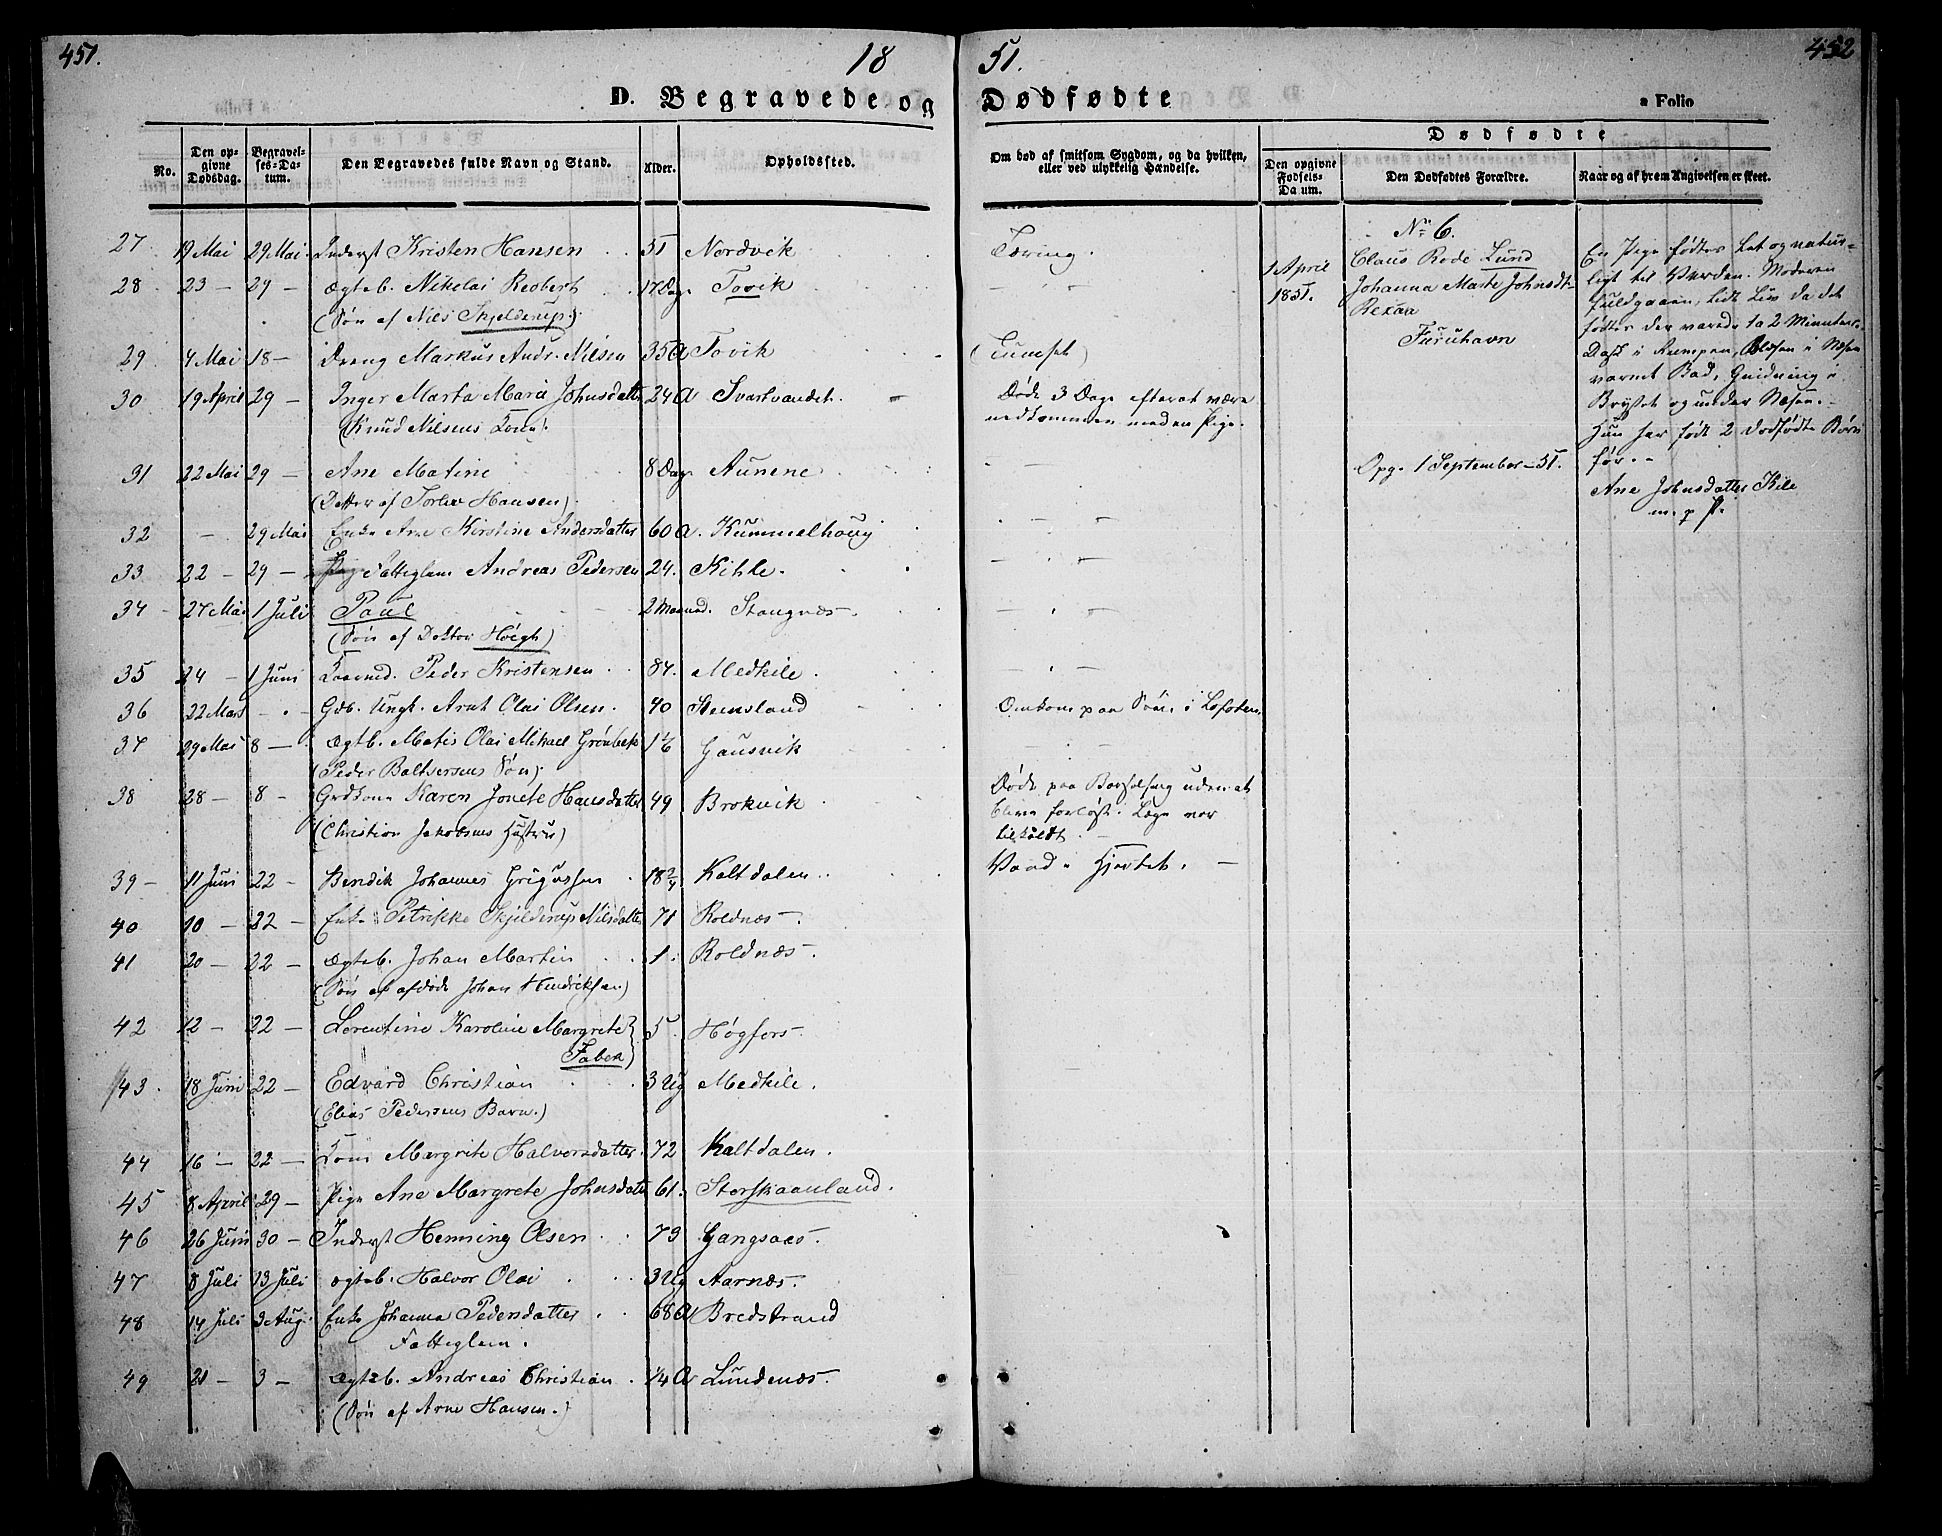 451.
18
51.
452
D. Begravede og
Dødfødte
a Folio
No.
Den opgivne Dødsdag.
Begravelses-Datum.
Den Begravedes fulde Navn og Stand.
Alder.
Opholdssted.
Om død af smitsom Sygdom, og da hvilken, eller ved ulykkelig Hændelse.
Dødfødte
Den opgivne Fødsels-Da um.
Den Dødfødtes Forældre.
Naar og af hvem Angivelsen er skeet.
27 19 Mai 29 Mai Inderst Kristen Hansen 51 Nordvik Tæring.
28 23 — 29 — Ægteb. Nikolai Reobert 17 Dage Tovik
(Søn af Niels Skjelderup.)
29 4 Mai 18 — Dreng Markus Andr. Nilsen 35 A Tovik
30 19 April 29 — Inger Marta Maria Johnsdatter 24 A Svartvandet. Døde 3 Dage efterat være
(Knud Nilsens Kone). nedkommen med en Pige.
31 22 Mai 29 — Ane Matine 8 Dage Aunene
(Datter af Torlev Hansen)
32 — 29 Mai Enke Ane Kirstine Andersdatter 60 A. Kummelhoug
33 22 — 29 — Fatteglem Andreas Pedersen 24. Kihle.
34 27 Mai 1 Juli Paul 2 Maaned. Stangnæs
(Søn af Doktor Høegh)
35 24 — 1 Juni Peder Kristensen 84. Medkile.
36 22 Mars — Gab. Ungk. Arnt Olai Olsen. 40 Stensland Omkom paa Søen i Lofoten.
37 29 Mai 8 — Ægtb. Matis Olai Mikael Grønbek 1 1/6 Gausvik
(Peder Baltsersens Søn).
38 28 — 8 — Grdkone Karen Jonete Hansdatter 49 Brokvik Døde paa Barselseng uden at
(Christian Jakobsens Hustru) blive forløst. Læge var
tilkaldt.
39 — 11 Juni 22 — Bendik Johannes Grigussen 18 3/4 Kaltdalen. Vand i Hjertet.
40 10 — 22 — Enke Petrikke Skjelderup Nilsdatter 71 Roldnæs.
41 20 — 22 — Ægteb. Johan Martin 1. Roldnæs.
(Søn af afdøde Johan Hendriksen)
42 12 — 22 — Lorentine Karoline Margrete 5. Høgfors.
Faber
43. 18 Juni 22 — Edvard Christian 3 Ug Medkile.
(Elias Pedersens Barn.)
44 16 — 22 — Margrite Halvorsdatter. 72 Kaltdalen.
45 8 April 29 — Pige Ane Margrete Johnsdatter 61. Storskaanland.
46 26 Juni 30 — Inderst Henning Olsen 73 Gangsaas.
47 8 Juli 13 Juli Ægteb. Halvor Olai 3 Ug Aarnæs.
48 14 Juli 3 Aug. Enke Johanna Pedersdatter 68 A Bredstrand
Fatteglem.
49 21 — 3 — Ægteb. Andreas Christian. 14 A Lundenæs.
(Søn af Arne Hansen.)
No 6.
1 April 1851.
Claus Rode Lund
Johanna Marte Johnsdt.
Rexaa
Furuhavn
Opg. 1 September — 51.
En Pige fødtes let og natur-
ligt til Verden. Moderen
fuldgaaen, lidt Liv da det
fødtes der varede 1 a 2 Minuter.
Dask i Rumpen, Blæsen i Næsen
varmt Bad, Gnidning i
Brystet og under Næsen. —
Hun har født 2 dødfødte Børn
før. —
Ane Johnsdatter Kile
m. p. P.